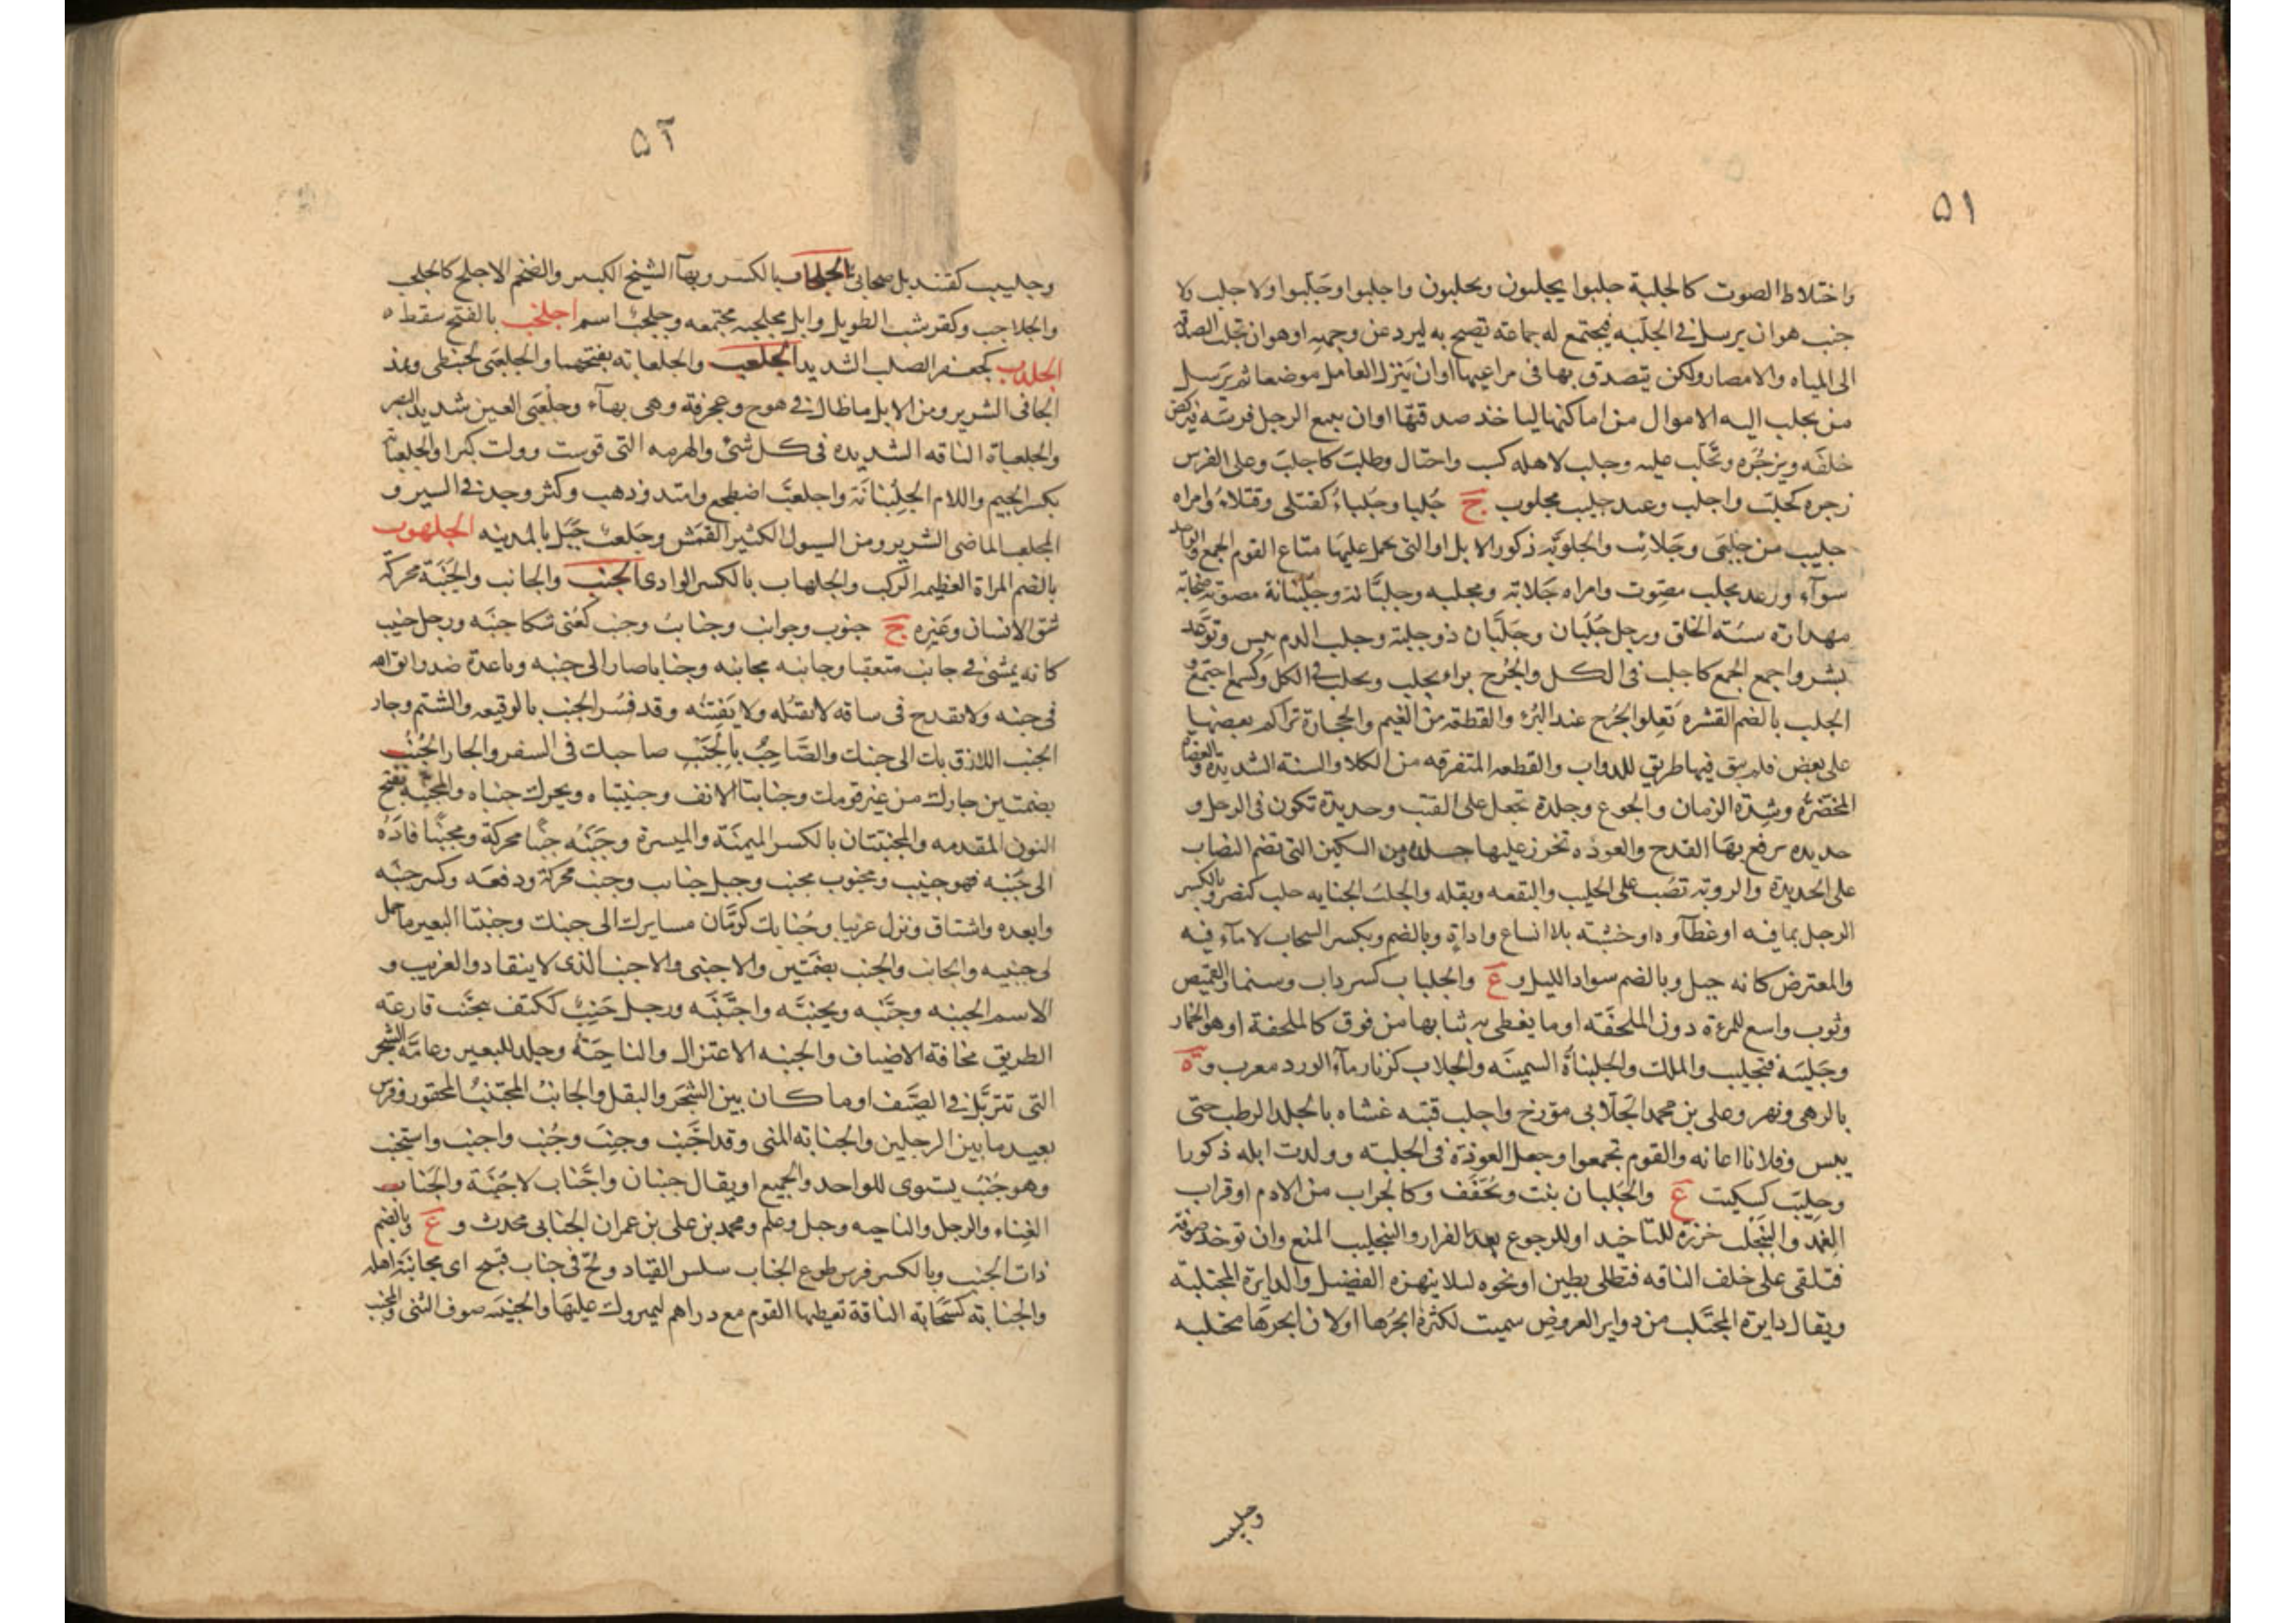 ٥١
واختلاط الصوت كالجلبة جلبوا يجلبون ويحلبون واجلبوا وجَلَّبوا ولا جلب ولا
جنب هو ان يرسل في الحَلْبه فيجتمع له جماعة تصيح به ليرد عن وجهه او هو ان تجلب الصدقة
الى المياه والامصار ولكن يتصدق بها في مراعيها او ان يَنزل العامل موضعا ثم يرسل
من يجلب اليه الاموال من اماكنها لياخذ صدقتها او ان يتبع الرجل فرسَه فيركض
خلفَه ويزجُرُه ويُجَلِّب عليه وجلب لاهله كسب واحتال وطلب كاجلب وعلى الفرس
زجره كجلّب واجلب وعبد جليب مجلوب ج جُلبا وجُلباءُ كقتلى وقتلاءُ وامراه
جليب من جلبَى وجَلائِب والجلوبَة ذكور الابل او التي يحمل عليها متاع القوم الجمع والواحد
سوآء ورعد مجلب مصوت وامراه جَلابة ومجلبه وجلبَّانة وجُلُبنانة مصوتة صخابة
مهدارة سيئة الخلق ورجل جُلُبّان وجَلَبَّان ذو جلبة وجلب الدم يبس وتوعَّد
بشر واجمع الجمع كاجلب في الكل والجُرح برا ويجلب ويجلب في الكل وكسمع اجتمع و
الجلب بالضم القشره تَعلو الجُرح عند البُرء والقطعة من الغيم والحجارة تراكم بعضها
على بعض فلم يبق فيها طريق للدواب والقطعه المتفرقه من الكلا والسنة الشديدة والعضاه
المخضَرَّة وشِدَّة الزمان والجوع وجلدة تجعل على القتب وحديدة تكون في الرحل و
حديده يرفع بها القدح والعوذه تخرز عليها جلده ومن السكين التي تضم النصاب
على الحديدة والروبة تصَب على الحليب والبقعه وبقله والجلبُ الجنايه جلب كنصر وبالكسر
الرحل بما فيه او غطآوه او خشبه بلا انساع واداةٍ وبالضم وبكسر السحاب لا مآء فيه
والمعترض كانه جبل وبالضم سواد الليل وع والجلباب كسرداب وسنمار القميص
وثوب واسع للمرءة دون الملحفَة او ما يغطى به ثيابها من فوق كالملحفة او هو الخمار
وجَلبَبَه فتجلبب والملك والجلبناةُ السمينَه والجُلاب كزنار مآءُ الورد معرب وة
بالرهى ونهر وعلي بن محمد الجُلّابي مؤرخ واجلب قتبَه غشاه بالجلد الرطب حتى
يبس وفلانا اعانه والقوم تجمعوا وجعل العوذة في الجلبة وولدت ابله ذكورا
وجِلِّيب كسِكيت ع والجُلبان بنت ويُخَفَّف وكالجراب من الادم او قراب
الغمد والينجَلب خرزة للتاخيذ او للرجوع بعد الفرار والتجليب المنع وان توخذ صوفة
فتلقى على خلف الناقه فتطلى بطين او نحوه ليلا ينهزه الفصيل والدايرة المجتلبة
ويقال دايرة المجتَلب من دواير العروض سميت لكثرة ابحُرها او لان ابحرها مجتلبه
وجليبيب
٥٢
وجليبيب كقنديل صحابى الجلحاب بالكسر وبهآ الشيخ الكبير والضخم الاجلح كالجلحب
والجلاحب وكقرشب الطويل وابل مجلحبه مجتمعه وجلحبٌ اسم اجلخب بالفتح سقط ه
الجلدب كجعفر الصلب الشديد الجلعب والجلعابه بفتحهما والجلعبَى كحبنطى ويمد
الجافى الشرير ومن الابل ما طال في هوج وعجرفة وهى بهآء وجلعبَى العين شديد البصر
والجلعباة الناقه الشديده في كل شئ والهرمه التي قوست وولت كبرا والجلعبانة
بكسر الجيم واللام الجلِبْنانَة واجلعبَّ اضطجع وامتد وذهب وكثر وجد في السير و
المجلعب الماضى الشرير ومن السيول الكثير القمَش وجَلعبٌ جَبَل بالمدينه الجلهوب
بالضم المراة العظيمه الركب والجلهاب بالكسر الوادى الجنب والجانب والجَنَبَة محركة
شق الانسان وغيره ج جنوب وجوانب وجنائب وجنب كعُنى شكا جنبَه ورجل جنيب
كانه يمشى في جانب متعقبا وجانبه مجانبه وجنابا صار الى جنبه وباعدة ضد واتق الله
فى جنبه ولا تقدح في ساقه لا تقتُله ولا تَفتِنُه وقد فُسِّر الجنب بالوقيعه والشتم وجار
الجنب اللازق بك الى جنبك والصَّاحِبُ بالجَنبِ صاحبك في السفر والجار الجُنُب
بضمتين جارك من غير قومك وجنابتا الانف وجنبتاه ويحرك جنباه والمجنَّبة بفتح
النون المقدمه والمجنبَتان بالكسر الميمنَة والميسرة وجَنَبَهُ جنَبًا محركة ومجنبًا قادَهُ
الى جَنبه فهو جنيب ومجنوب مجنب وجبل جنائب وجنب محركة ودفعَه وكسر جنبَه
وابعده واشتاق ونزل غريبا وجُنابك كرُمّان مسايرك الى جنبك وجنبتا البعير ما حمل
لى جنبيه والجانب والجنب بضمتين والاجنبى والاجنب الذى لا ينقاد والغريب و
الاسم الجنبه وجَنَّبه وتجنبَّه واجتَنَبَه ورجل جَنِبٌ ككتف يتجنَّب قارعَة
الطريق مخافة الاضياف والجنبه الاعتزال والناحِيَة وجلد للبعير وعامَّة الشجر
التى تتربَّل في الصَّيف او ما كان بين الشجَر والبقل والجانبُ المجتَنِبُ المحقور وفرس
بعيد ما بين الرجلين والجنابه المنى وقد اجَنب وجنِبَ وجُنِب واجنب واستجنب
وهو جُنُب يستوى للواحد والجميع او يقال جنبان واجناب لا جُنُبَة والجَناب
الفِناء والرحل والناحيه وجبل وعلم ومحمد بن على بن عمران الجنابى محدث وع وبالضم
ذات الجنب وبالكسر فرس طوع الجناب سلس القياد ولجَّ في جناب قبيح اى مجانبَة اهله
والجنابَه كسَحَابَه الناقة تعطيها القوم مع دراهم ليميروك عليها والجنيبَه صوف الثنى والمجنب